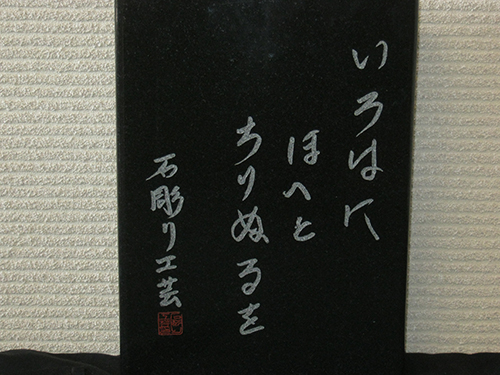 いろはに
ほへと
ちりぬるを
石彫り工芸